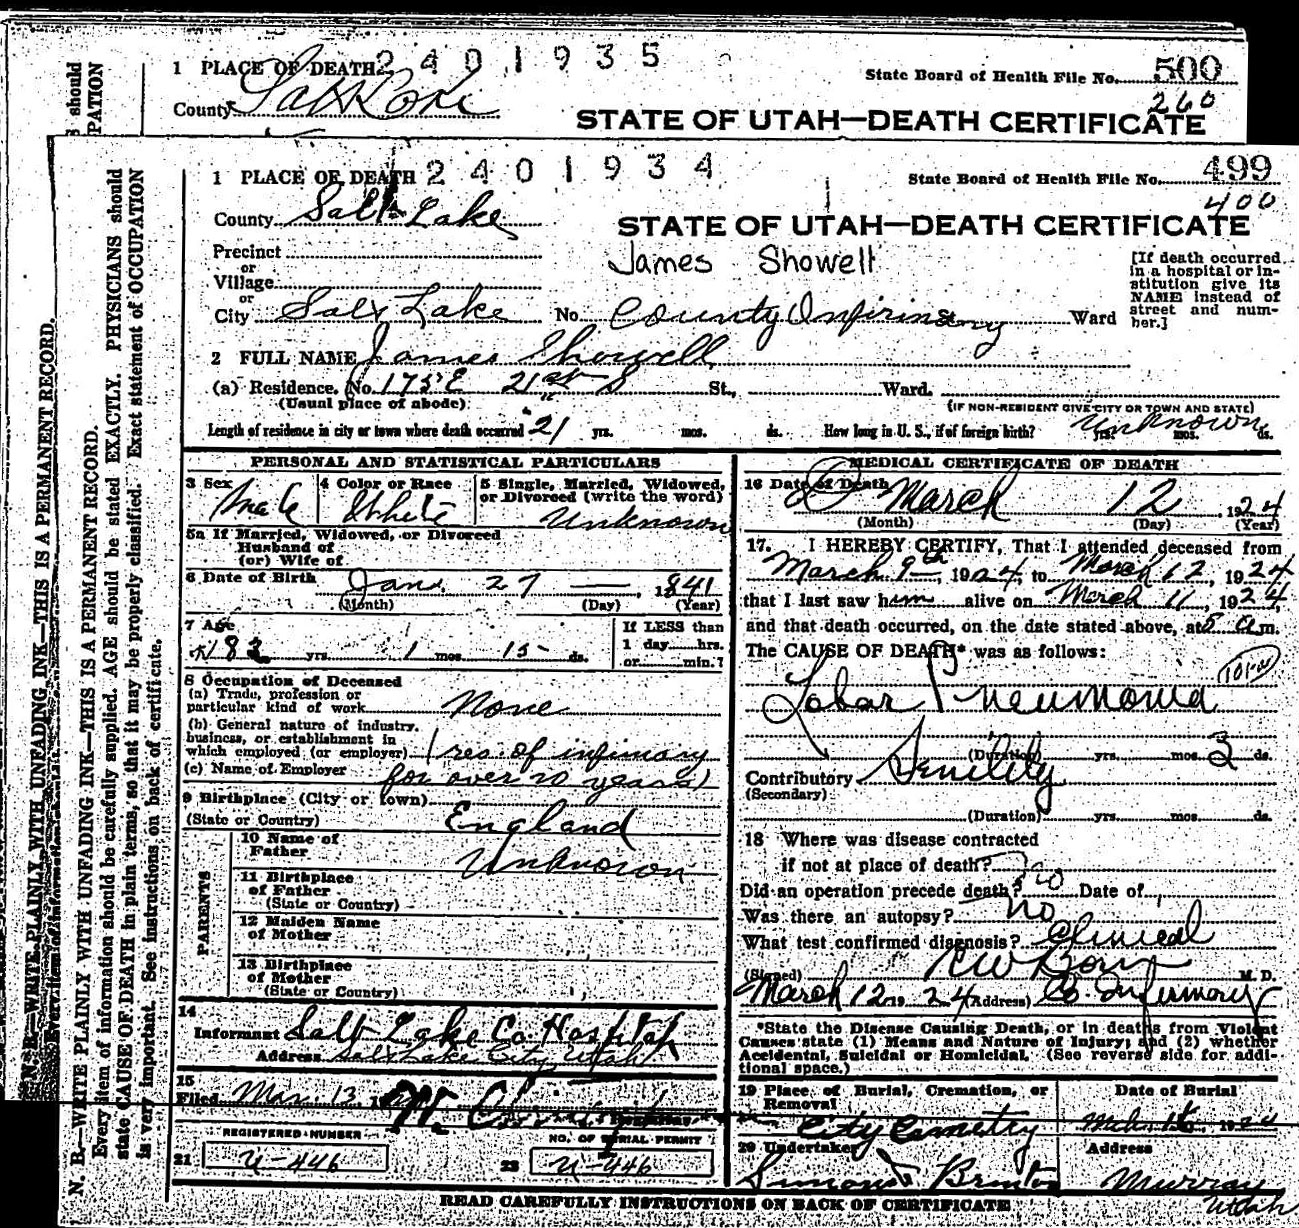 1 PLACE OF DEATH 2401935
State Board of Health File No. 500
260
County Salt Lake
STATE OF UTAH—DEATH CERTIFICATE
1 PLACE OF DEATH 2401934
State Board of Health File No. 499
400
County Salt Lake
STATE OF UTAH—DEATH CERTIFICATE
Precinct
James Showell
[If death occurred in a hospital or institution give its NAME instead of street and number.]
or
Village
or
City Salt Lake No. County Infirmary St. Ward
2 FULL NAME James Showell
(a) Residence. No. 175 E 21st S St., Ward.
(Usual place of abode)
(IF NON-RESIDENT GIVE CITY OR TOWN AND STATE)
Length of residence in city or town where death occurred 21 yrs. mos. ds. How long in U. S., if of foreign birth? Unknown yrs. mos. ds.
PERSONAL AND STATISTICAL PARTICULARS
3 Sex Male
4 Color or Race White
5 Single, Married, Widowed, or Divorced (write the word) Unknown
5a If Married, Widowed, or Divorced
Husband of
(or) Wife of
6 Date of Birth Jan. 27 — 1841
(Month) (Day) (Year)
7 Age 83 yrs. 1 mos. 15 ds.
If LESS than
1 day hrs.
or min.?
8 Occupation of Deceased
(a) Trade, profession or
particular kind of work None
(b) General nature of industry,
business, or establishment in
which employed (or employer) (res. of infirmary
(c) Name of Employer for over 20 years)
9 Birthplace (City or town)
(State or Country) England
PARENTS
10 Name of
Father Unknown
11 Birthplace
of Father
(State or Country)
12 Maiden Name
of Mother
13 Birthplace
of Mother
(State or Country)
14
Informant Salt Lake Co. Hospital
Address Salt Lake City, Utah
15
Filed Mar 13, 19
REGISTERED NUMBER
21 U-446
NO. OF BURIAL PERMIT
22 U-446
MEDICAL CERTIFICATE OF DEATH
16 Date of Death March 12, 1924
(Month) (Day) (Year)
17. I HEREBY CERTIFY, That I attended deceased from
March 9th, 1924, to March 12, 1924
that I last saw him alive on March 11, 1924,
and that death occurred, on the date stated above, at 5 a.m.
The CAUSE OF DEATH* was as follows:
Lobar Pneumonia
(Duration) yrs. mos. 3 ds.
Contributory Senility
(Secondary)
(Duration) yrs. mos. ds.
18 Where was disease contracted
if not at place of death?
Did an operation precede death? no Date of
Was there an autopsy? no
What test confirmed diagnosis? Clinical
(Signed) M. D.
March 12 19 24 (Address) Co. Infirmary
*State the Disease Causing Death, or in deaths from Violent
Causes state (1) Means and Nature of Injury; and (2) whether
Accidental, Suicidal or Homicidal. (See reverse side for addi-
tional space.)
19 Place of Burial, Cremation, or
Removal
City Cemetery
Date of Burial
1924
20 Undertaker
Address
Murray
Utah
READ CAREFULLY INSTRUCTIONS ON BACK OF CERTIFICATE
N. B.—WRITE PLAINLY WITH UNFADING INK—THIS IS A PERMANENT RECORD.
Every item of information should be carefully supplied. AGE should be stated EXACTLY. PHYSICIANS should
state CAUSE OF DEATH in plain terms, so that it may be properly classified. Exact statement of OCCUPATION
is very important. See instructions on back of certificate.
N. B.—WRITE PLAINLY WITH UNFADING INK—THIS IS A PERMANENT RECORD.
should
PATION